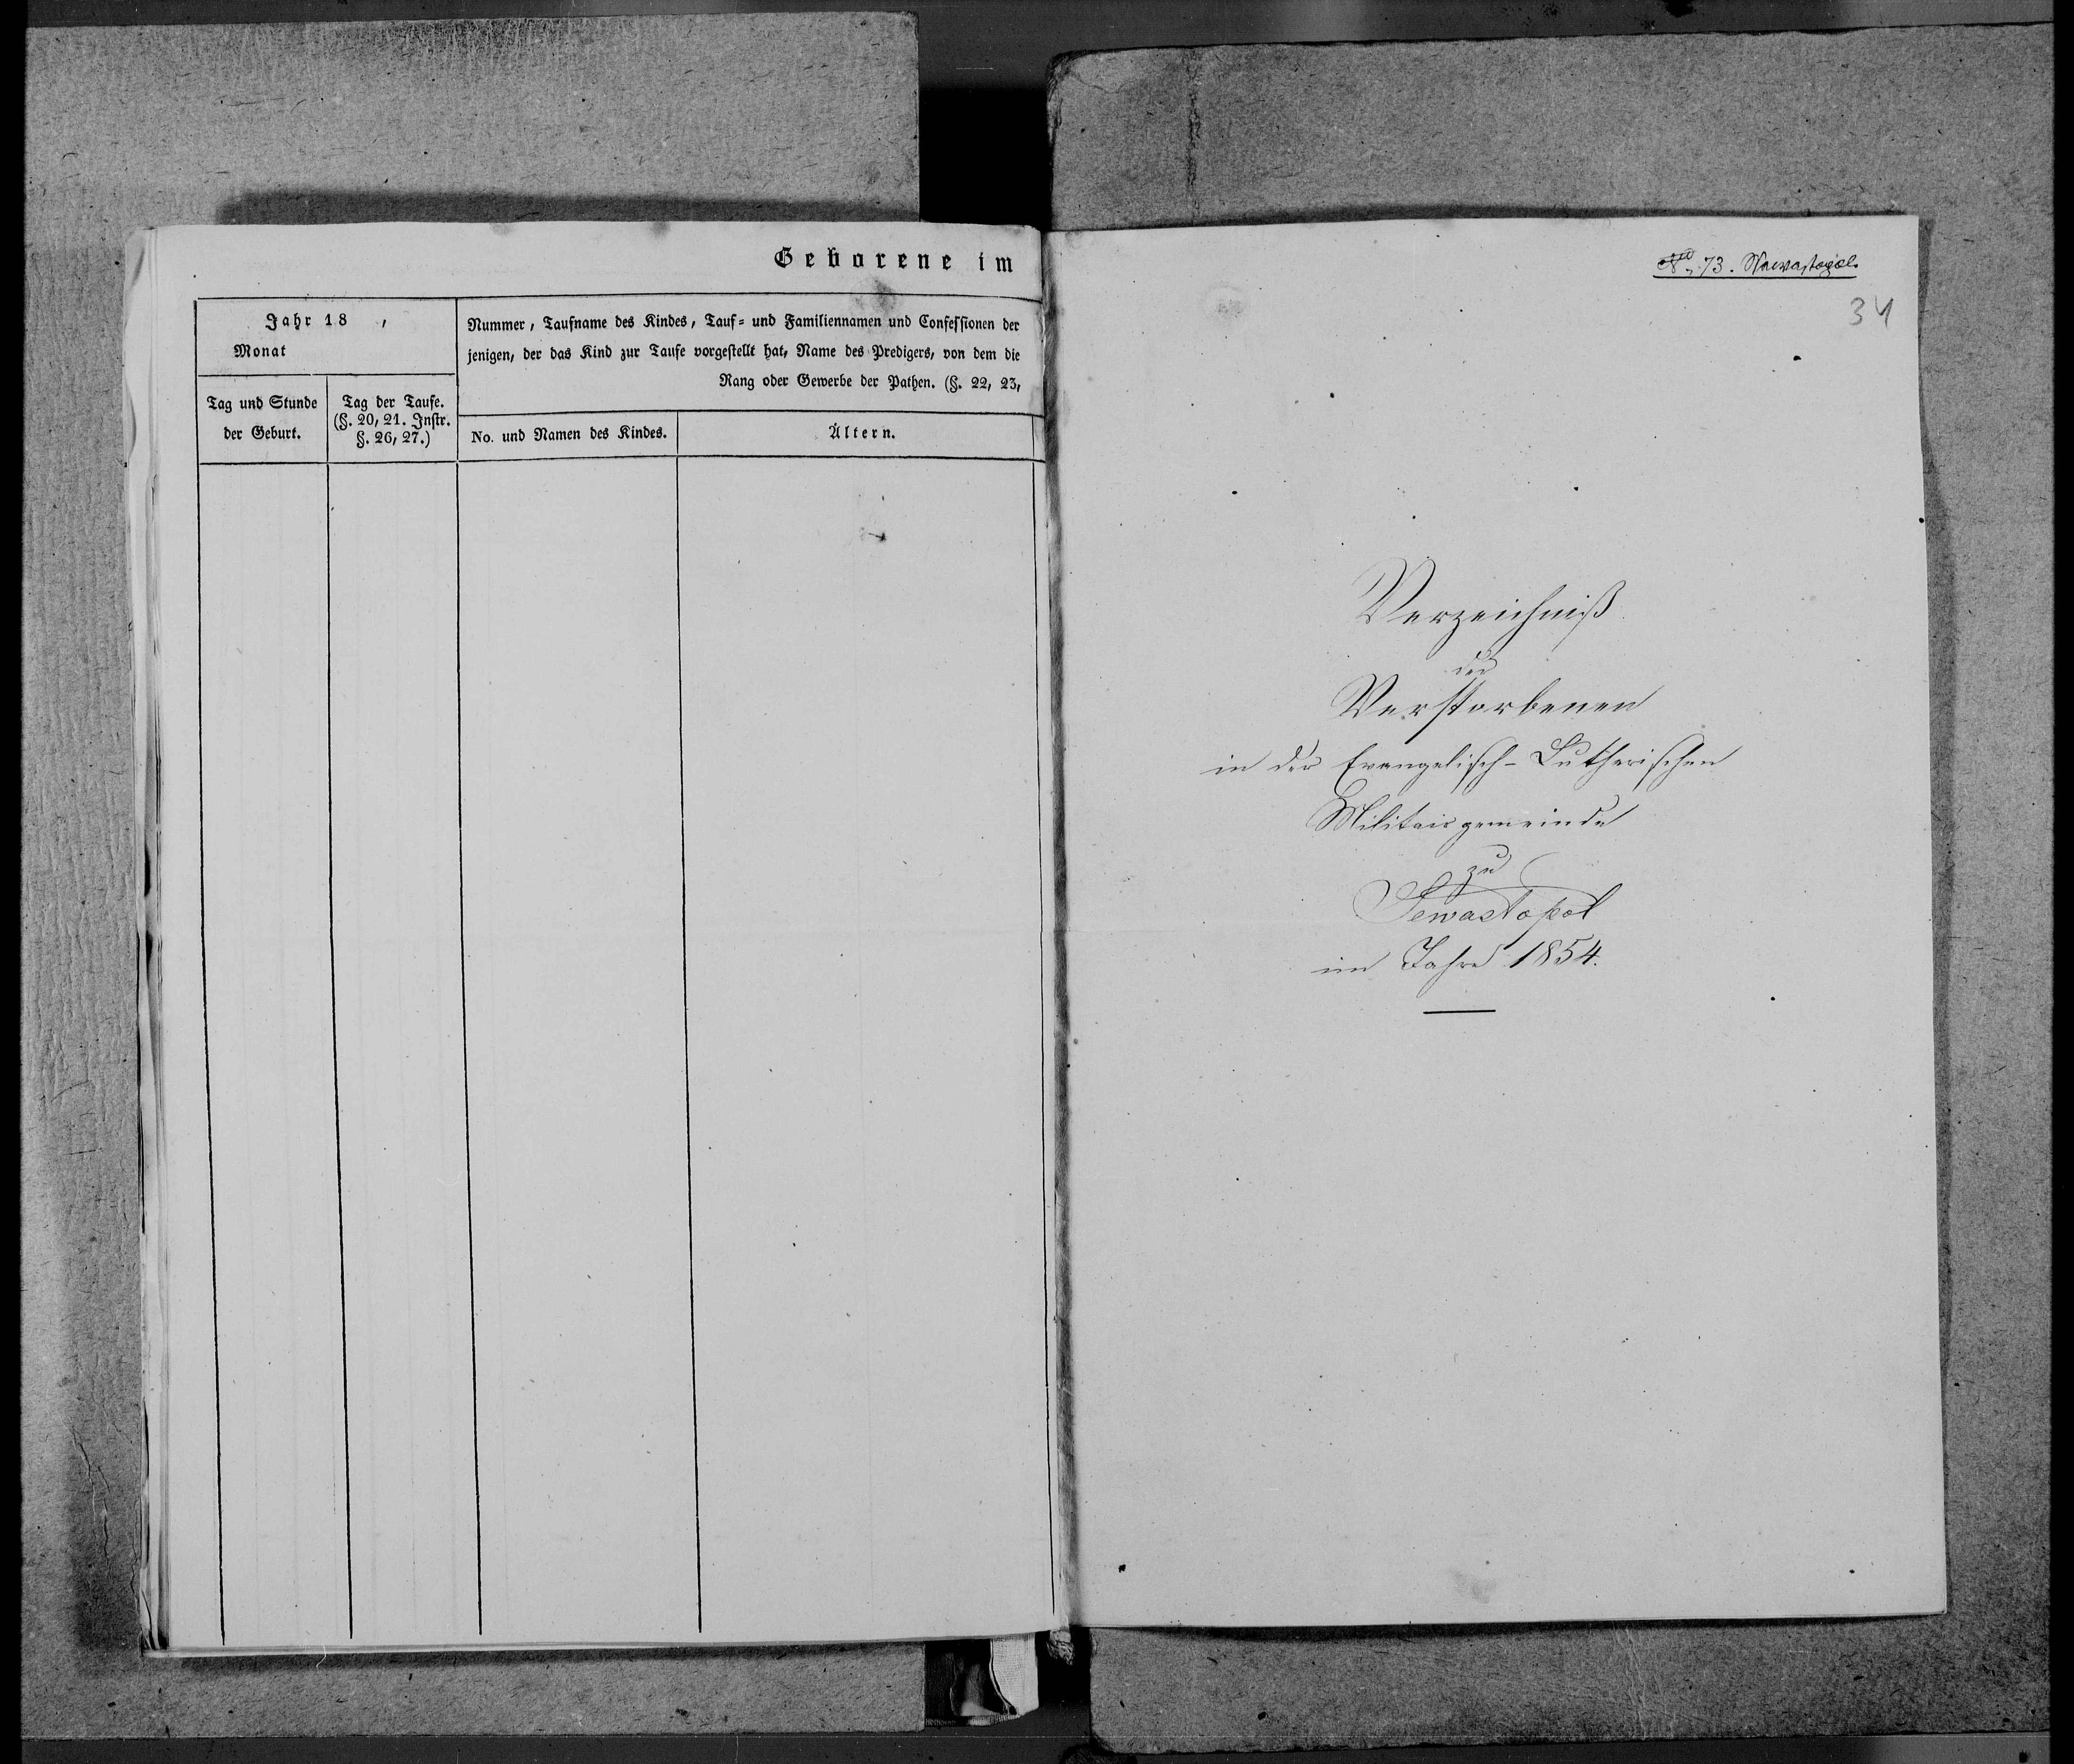 Geborene im
Jahr 18 ,
Monat
Nummer, Taufname des Kindes, Tauf- und Familiennamen und Confessionen der
jenigen, der das Kind zur Taufe vorgestellt hat, Name des Predigers, von dem die
Rang oder Gewerbe der Pathen. (§. 22, 23,
Tag und Stunde
der Geburt.
Tag der Taufe.
(§. 20, 21. Instr.
§. 26, 27.)
No. und Namen des Kindes.
Ältern.
No 73. Sewastopol.
34
Verzeichniß
der
Verstorbenen
in der Evangelisch-Lutherischen
Militairgemeinde
zu
Sewastopol
im Jahre 1854.